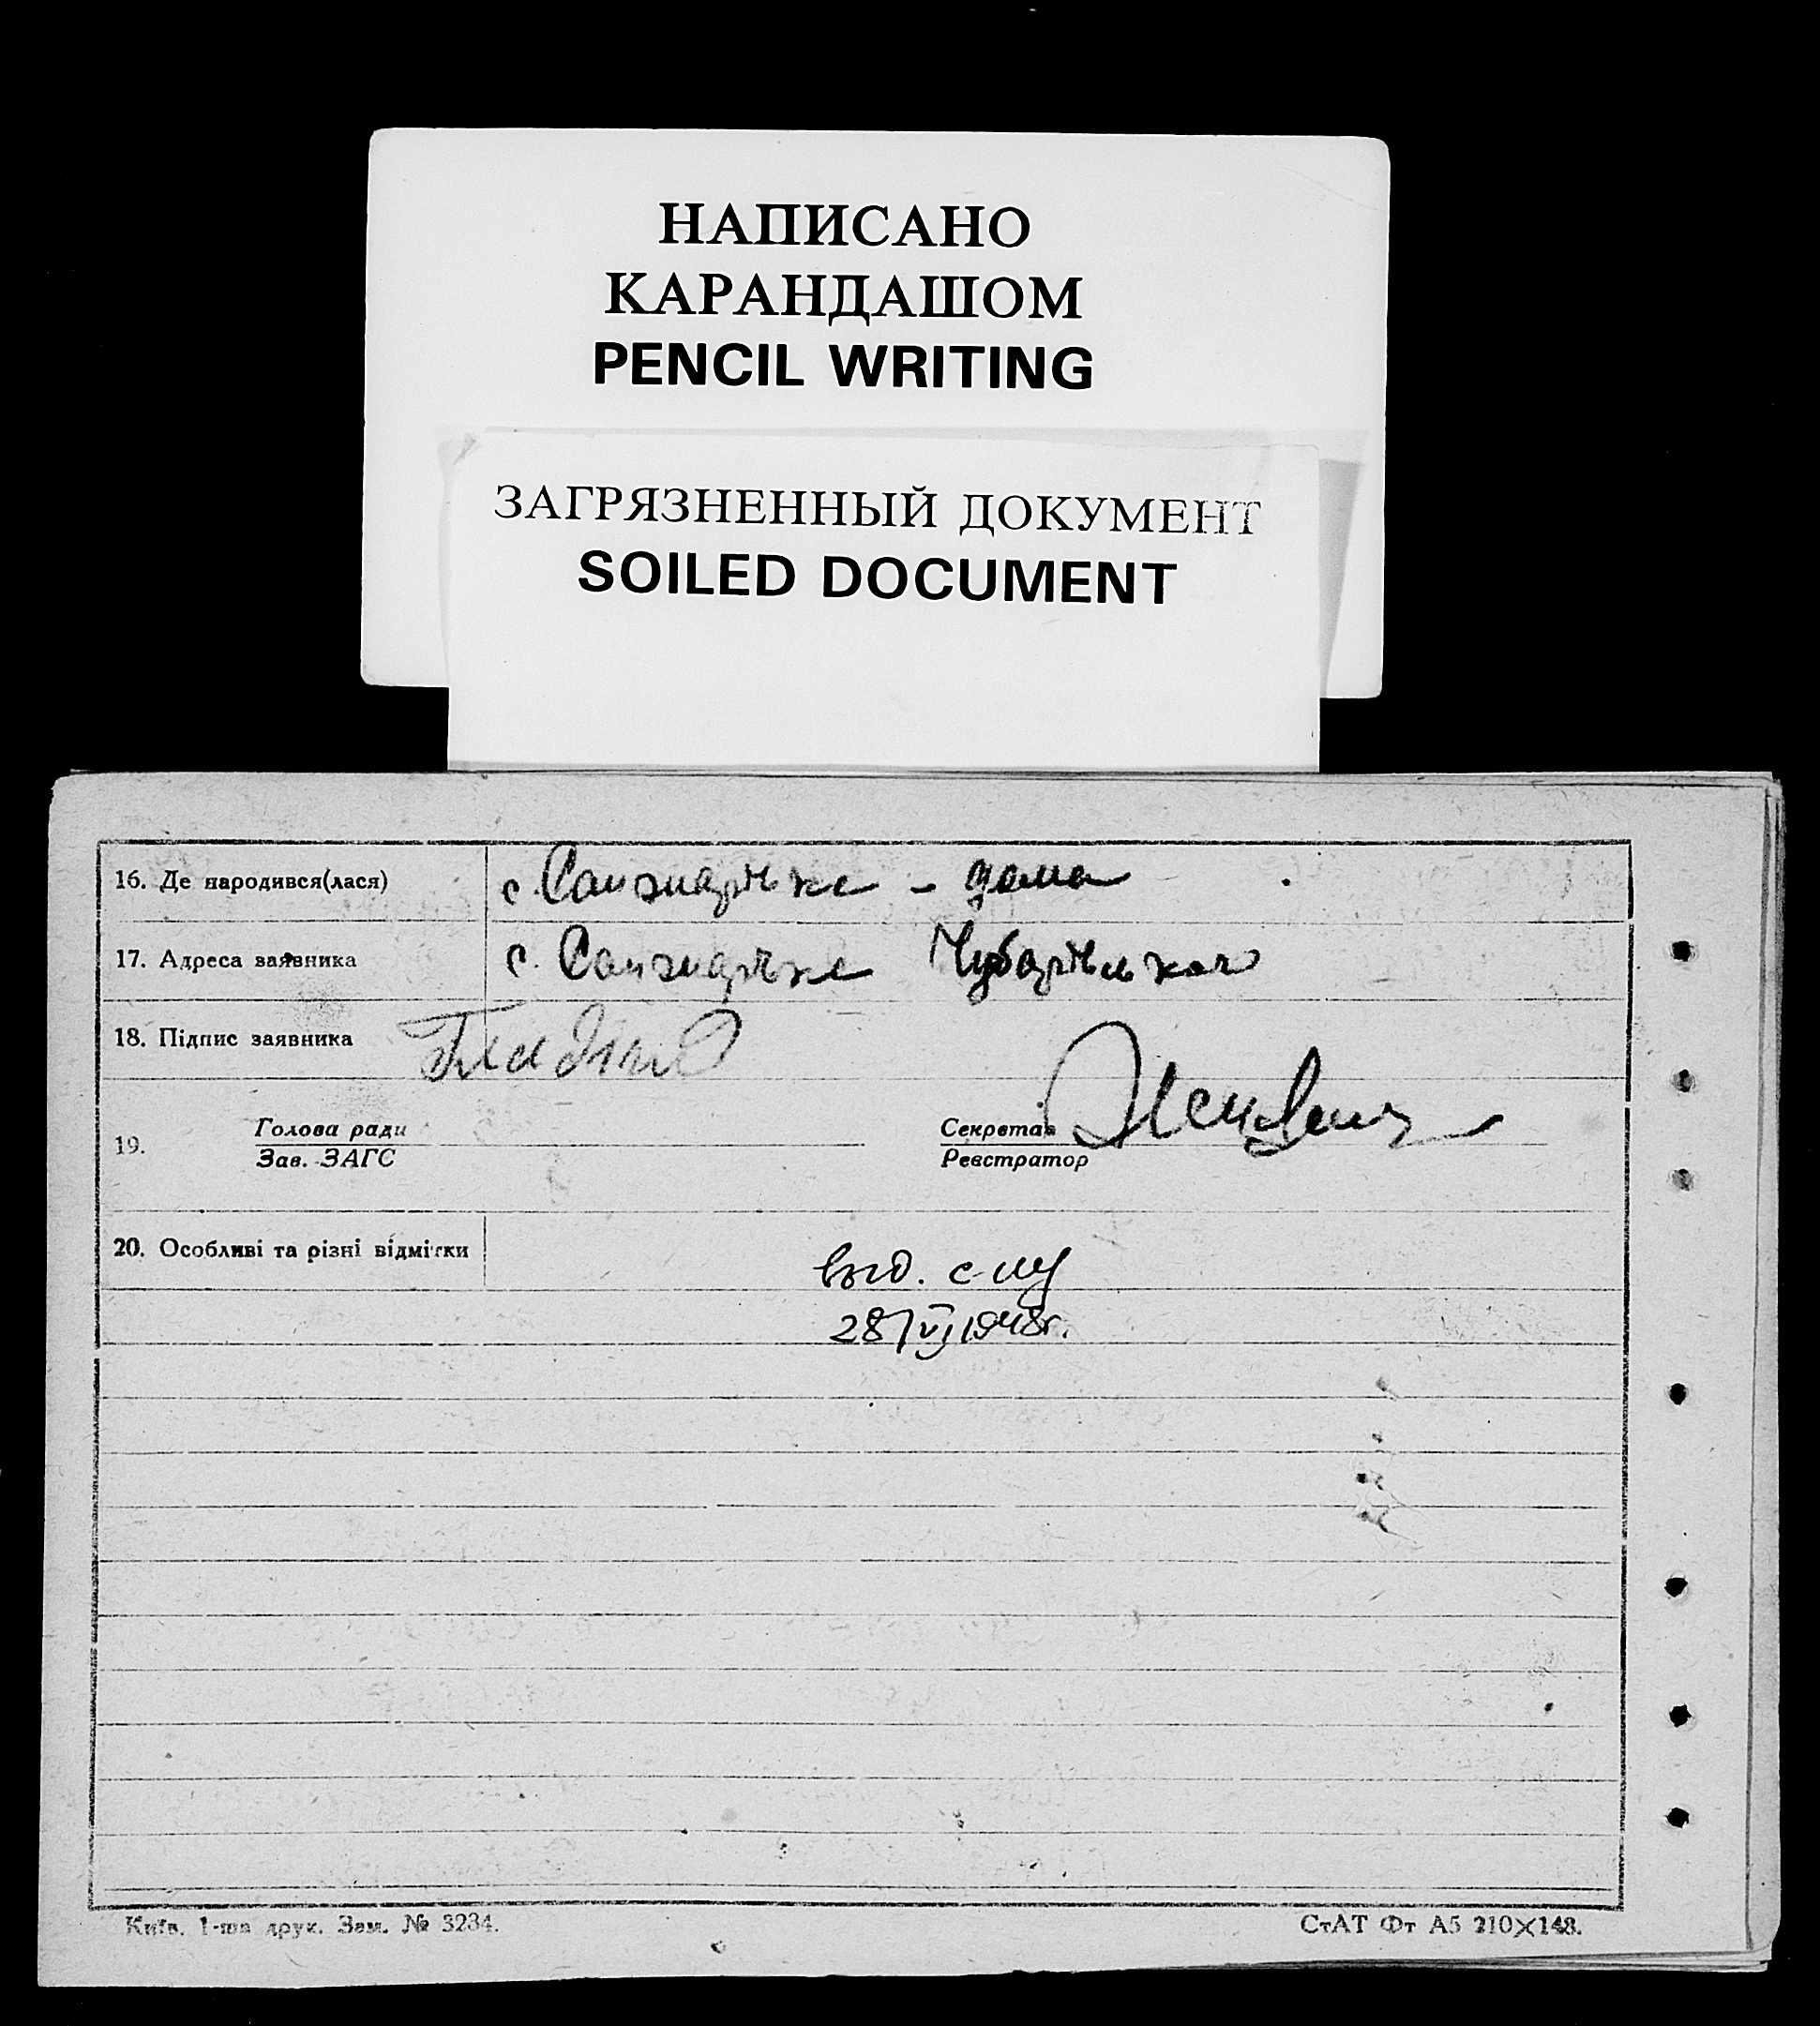 НАПИСАНО
КАРАНДАШОМ
PENCIL WRITING
ЗАГРЯЗНЕННЫЙ ДОКУМЕНТ
SOILED DOCUMENT
16. Де народився(лася) с. Санжарівка - дома
17. Адреса заявника с. Санжарівка Чубарівського
18. Підпис заявника
19. Голова ради
Зав. ЗАГС
Секретар
Реєстратор
20. Особливі та різні відмітки
28/VI 1948г.
Київ. 1-ша друк. Зам. № 3234.
СтАТ Фт А5 210×148.